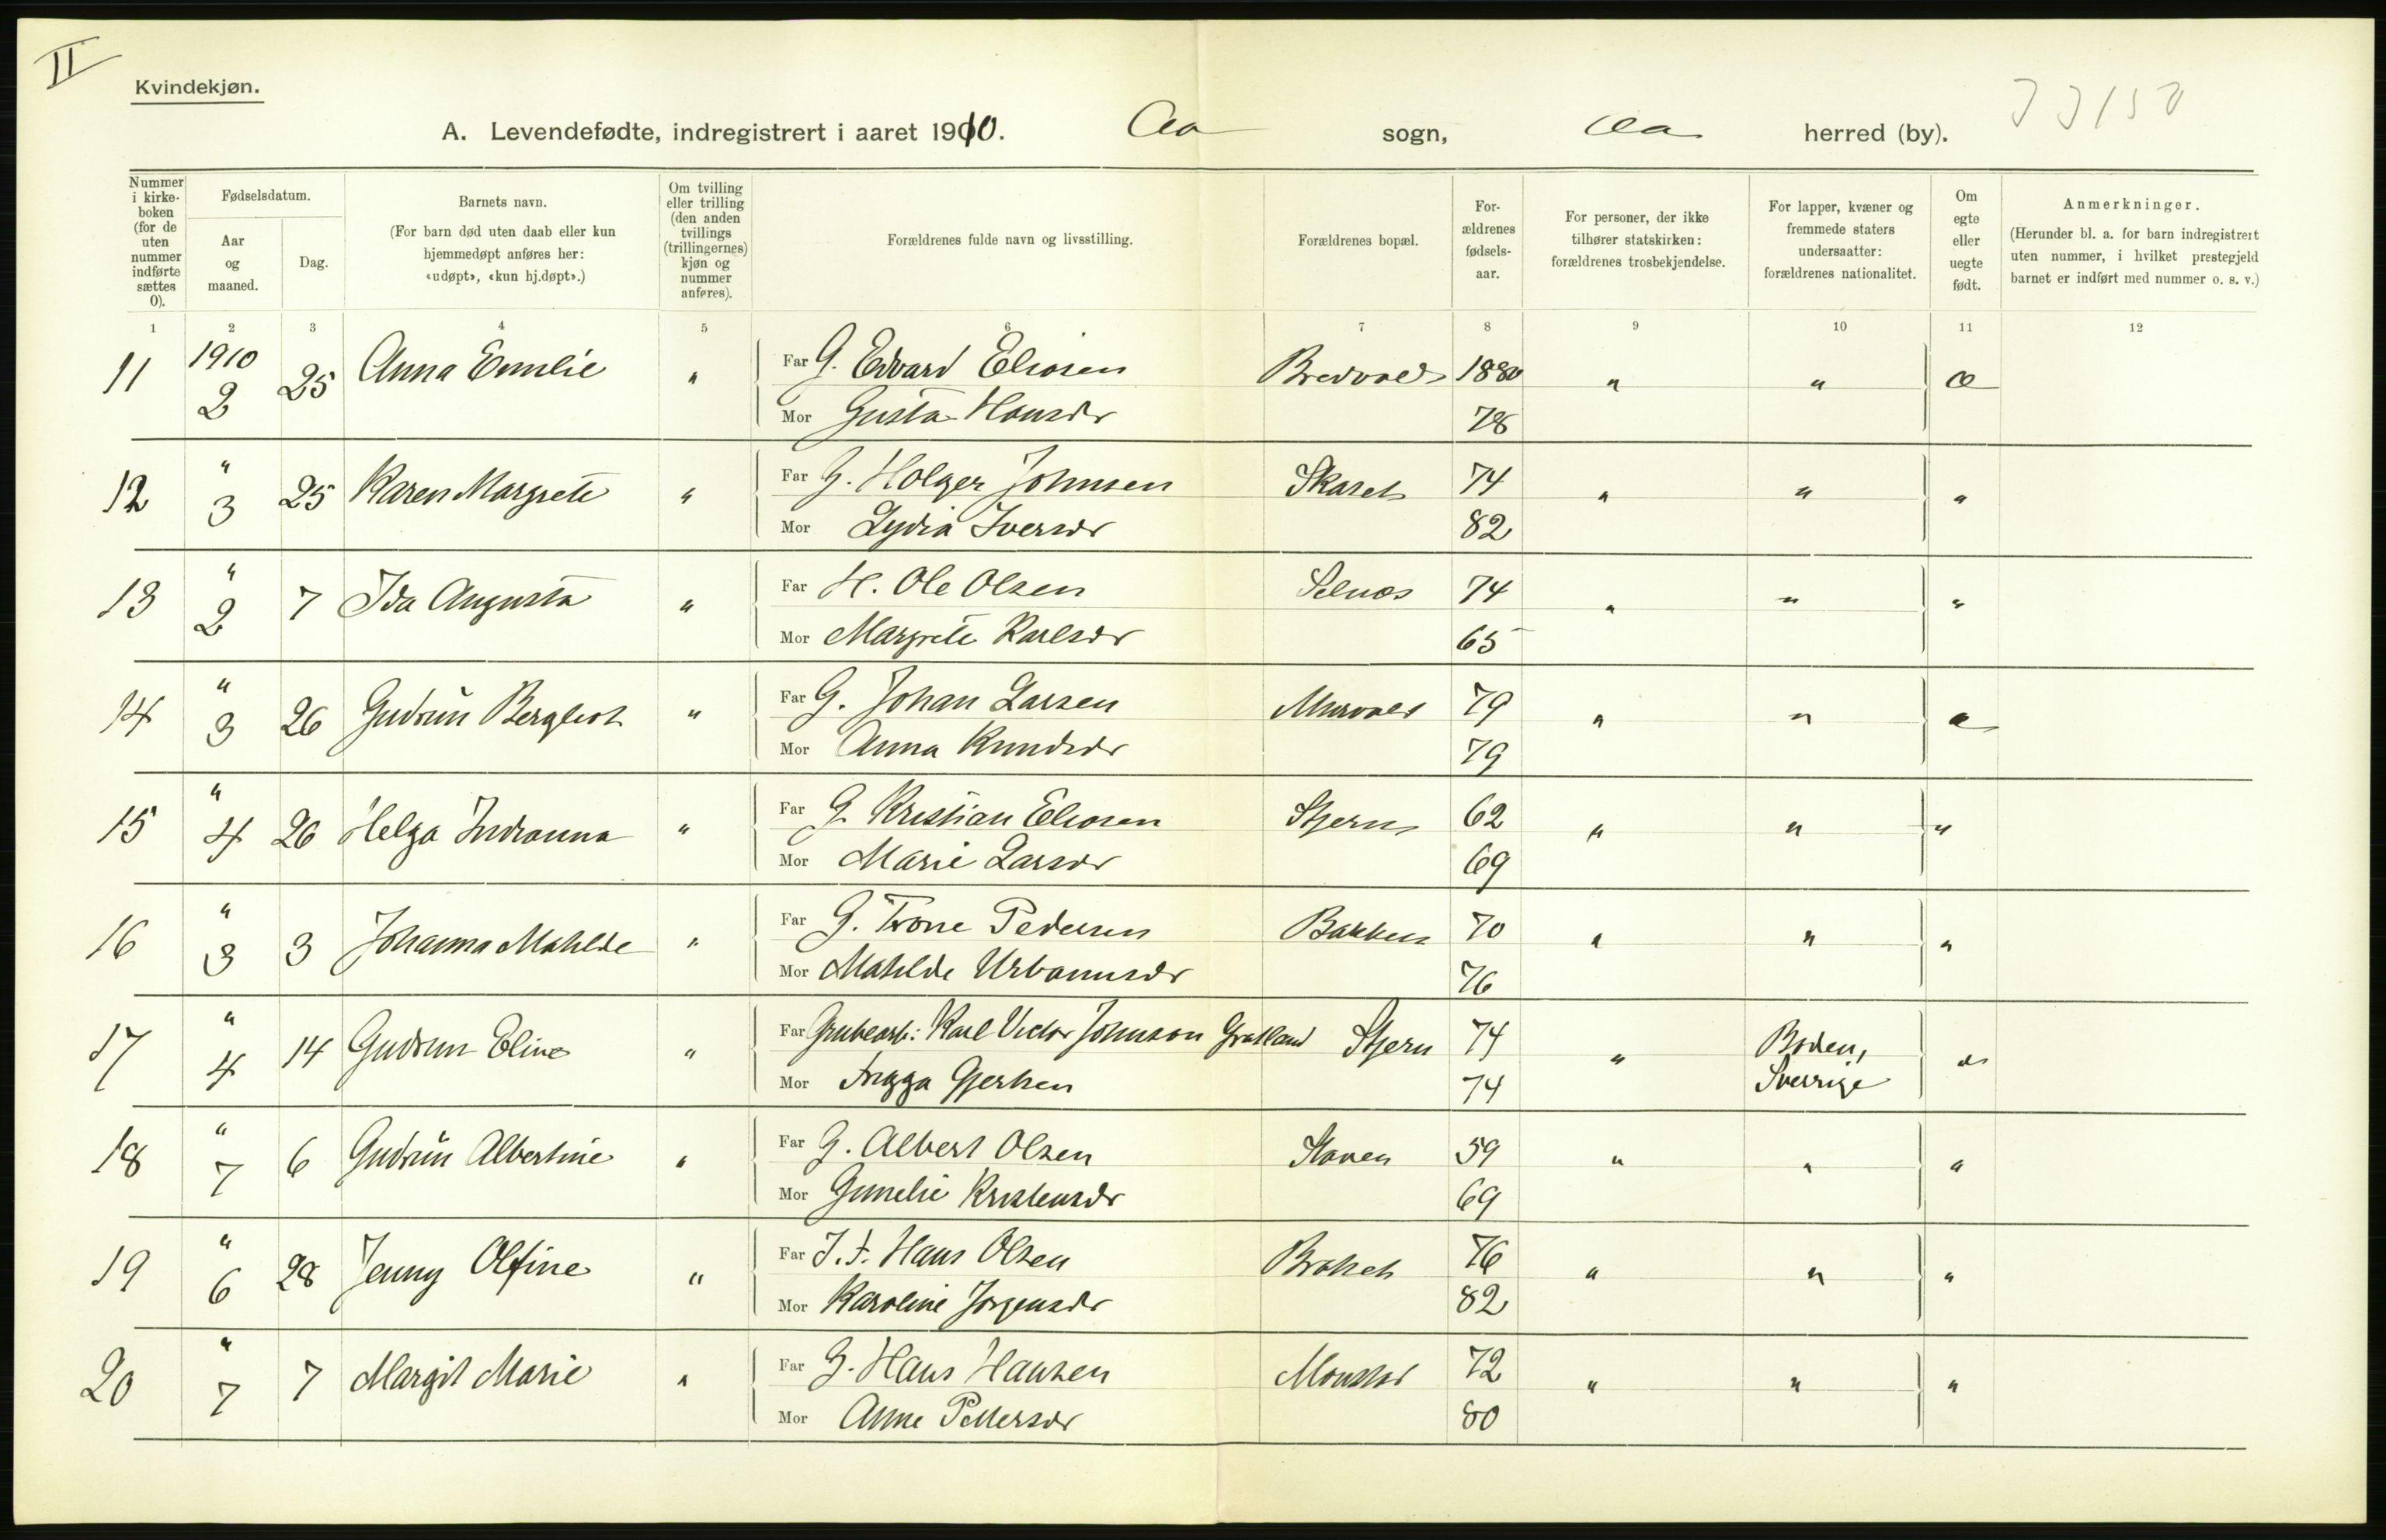 II
Kvindekjøn.
A. Levendefødte, indregistrert i aaret 1910. Aa sogn, Aa herred (by).
Nummer i kirkeboken (for de uten nummer indførte sættes 0).
Fødselsdatum.
Aar og maaned.
Dag.
Barnets navn.
(For barn død uten daab eller kun hjemmedøpt anføres her: «udøpt», «kun hj.døpt».)
Om tvilling eller trilling (den anden tvillings (trillingernes) kjøn og nummer anføres).
Forældrenes fulde navn og livsstilling.
Forældrenes bopæl.
Forældrenes fødselsaar.
For personer, der ikke tilhører statskirken: forældrenes trosbekjendelse.
For lapper, kvæner og fremmede staters undersaatter: forældrenes nationalitet.
Om egte eller uegte født.
Anmerkninger.
(Herunder bl. a. for barn indregistrert uten nummer, i hvilket prestegjeld barnet er indført med nummer o. s. v.)
1 2 3 4 5 6 7 8 9 10 11 12
11 1910 2 25 Anna Emelie " Far G. Edvard Eliosen Bredvold 1880 " " e
Mor Gusta Hansdr 78
12 " 3 25 Karen Margrete " Far G. Holger Johnsen Skaret 74 " " "
Mor Lydia Iversdr 82
13 " 2 7 Ida Augusta " Far H. Ole Olsen Selnes 74 " " "
Mor Margrete Karlsdr 65
14 " 3 26 Gudrun Bergliot " Far G. Johan Larsen 79 " " e
Mor Anna Knudsdr 79
15 " 4 26 Helga Indianna " Far G. Kristian Eliosen Stjern 62 " " "
Mor Marie Larsdr 69
16 " 3 3 Johanna Matilde " Far G. Trone Pedersen Bakken 70 " " "
Mor Matilde Urbanusdr 76
17 " 4 14 Gudrun Eline " Far Grubearb: Karl Victor Johnson Stjern 74 " Boden, e
Mor Gjertsen 74 Sverrige
18 " 7 6 Gudrun Albertine " Far G. Albert Olsen Staven 59 " " "
Mor Gunelie Kristensdr 69
19 " 6 28 Jenny Olfine " Far J. F. Hans Olsen Bratset 76 " " "
Mor Karoline Jørgensdr 82
20 " 7 7 Margit Marie " Far G. Hans Hansen 72 " " "
Mor Anne Pettersdr 80